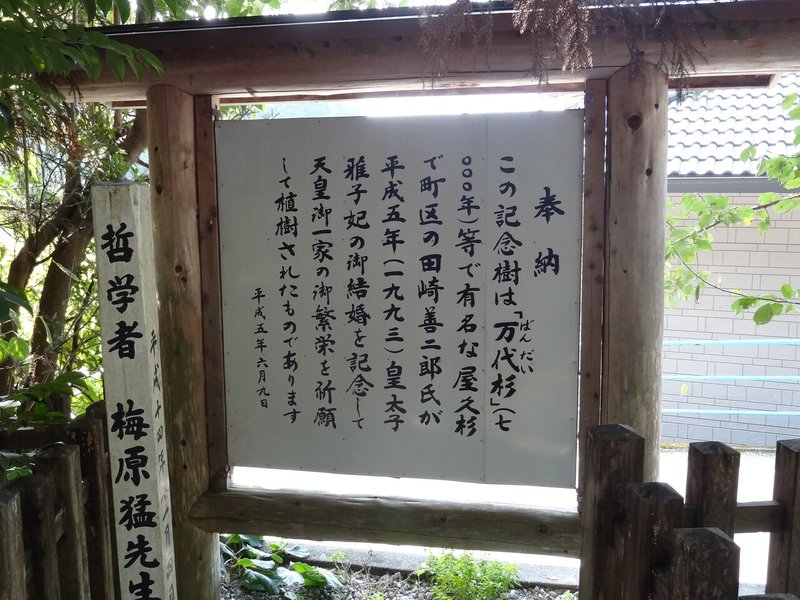 奉納
この記念樹は「万代杉」(七
ばんだい
〇〇〇年)等で有名な屋久杉
で町区の田崎善二郎氏が
平成五年(一九九三)皇太子
雅子妃の御結婚を記念して
天皇御一家の御繁栄を祈願
して植樹されたものであります
平成五年六月九日
哲学者 梅原猛先生
平成十四年